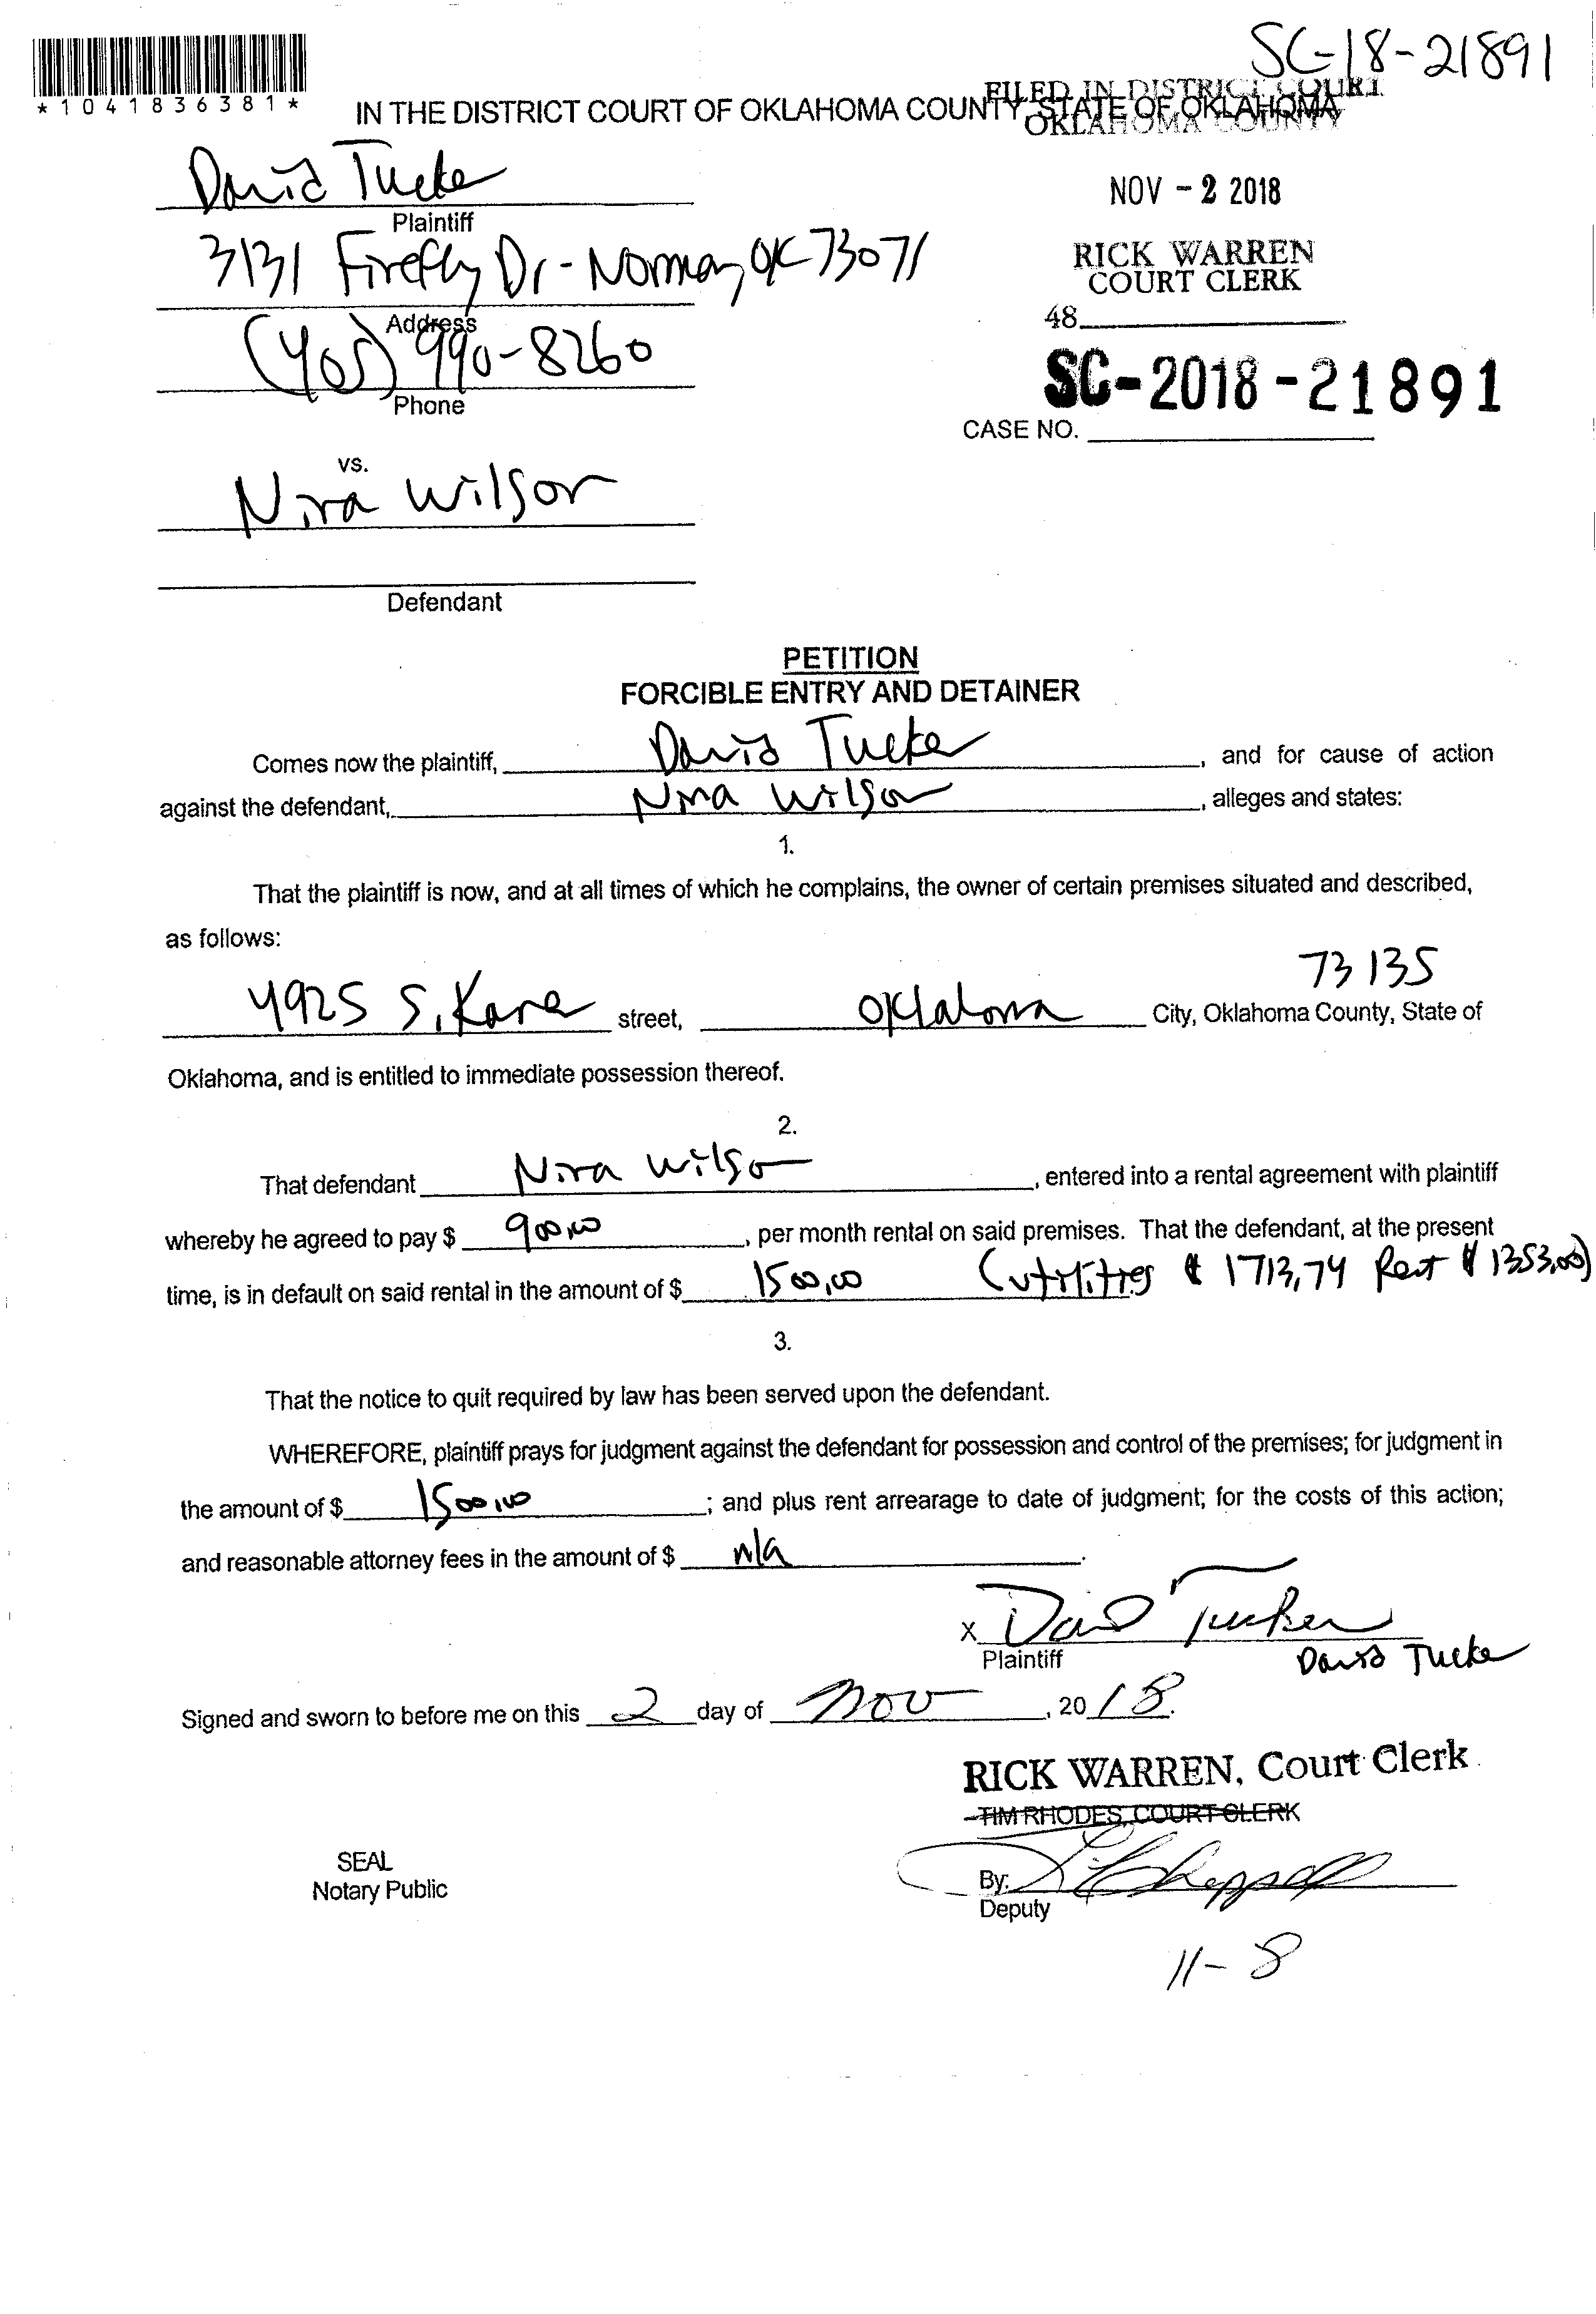 SC-18-21891
*1041836381*
FILED IN DISTRICT COURT
OKLAHOMA COUNTY
IN THE DISTRICT COURT OF OKLAHOMA COUNTY, STATE OF OKLAHOMA
David Tucker
Plaintiff
NOV - 2 2018
3131 Firefly Dr - Norman, OK 73071
Address
RICK WARREN
COURT CLERK
48
(405) 990-8260
Phone
SC-2018-21891
CASE NO.
vs.
Nira Wilson
Defendant
PETITION
FORCIBLE ENTRY AND DETAINER
Comes now the plaintiff, David Tucker, and for cause of action
against the defendant, Nira Wilson, alleges and states:
1.
That the plaintiff is now, and at all times of which he complains, the owner of certain premises situated and described,
as follows:
73135
4925 S. street, Oklahoma City, Oklahoma County, State of
Oklahoma, and is entitled to immediate possession thereof.
2.
That defendant Nira Wilson, entered into a rental agreement with plaintiff
whereby he agreed to pay $ 900.00, per month rental on said premises. That the defendant, at the present
time, is in default on said rental in the amount of $ 1500.00 (utilities $ 1713.74 Rent $ 1353.00)
3.
That the notice to quit required by law has been served upon the defendant.
WHEREFORE, plaintiff prays for judgment against the defendant for possession and control of the premises; for judgment in
the amount of $ 1500.00; and plus rent arrearage to date of judgment; for the costs of this action;
and reasonable attorney fees in the amount of $ n/a.
X David Tucker
Plaintiff David Tucker
Signed and sworn to before me on this 2 day of Nov, 2018.
RICK WARREN, Court Clerk
TIM RHODES, COURT CLERK
SEAL
Notary Public
By:
Deputy
11-8